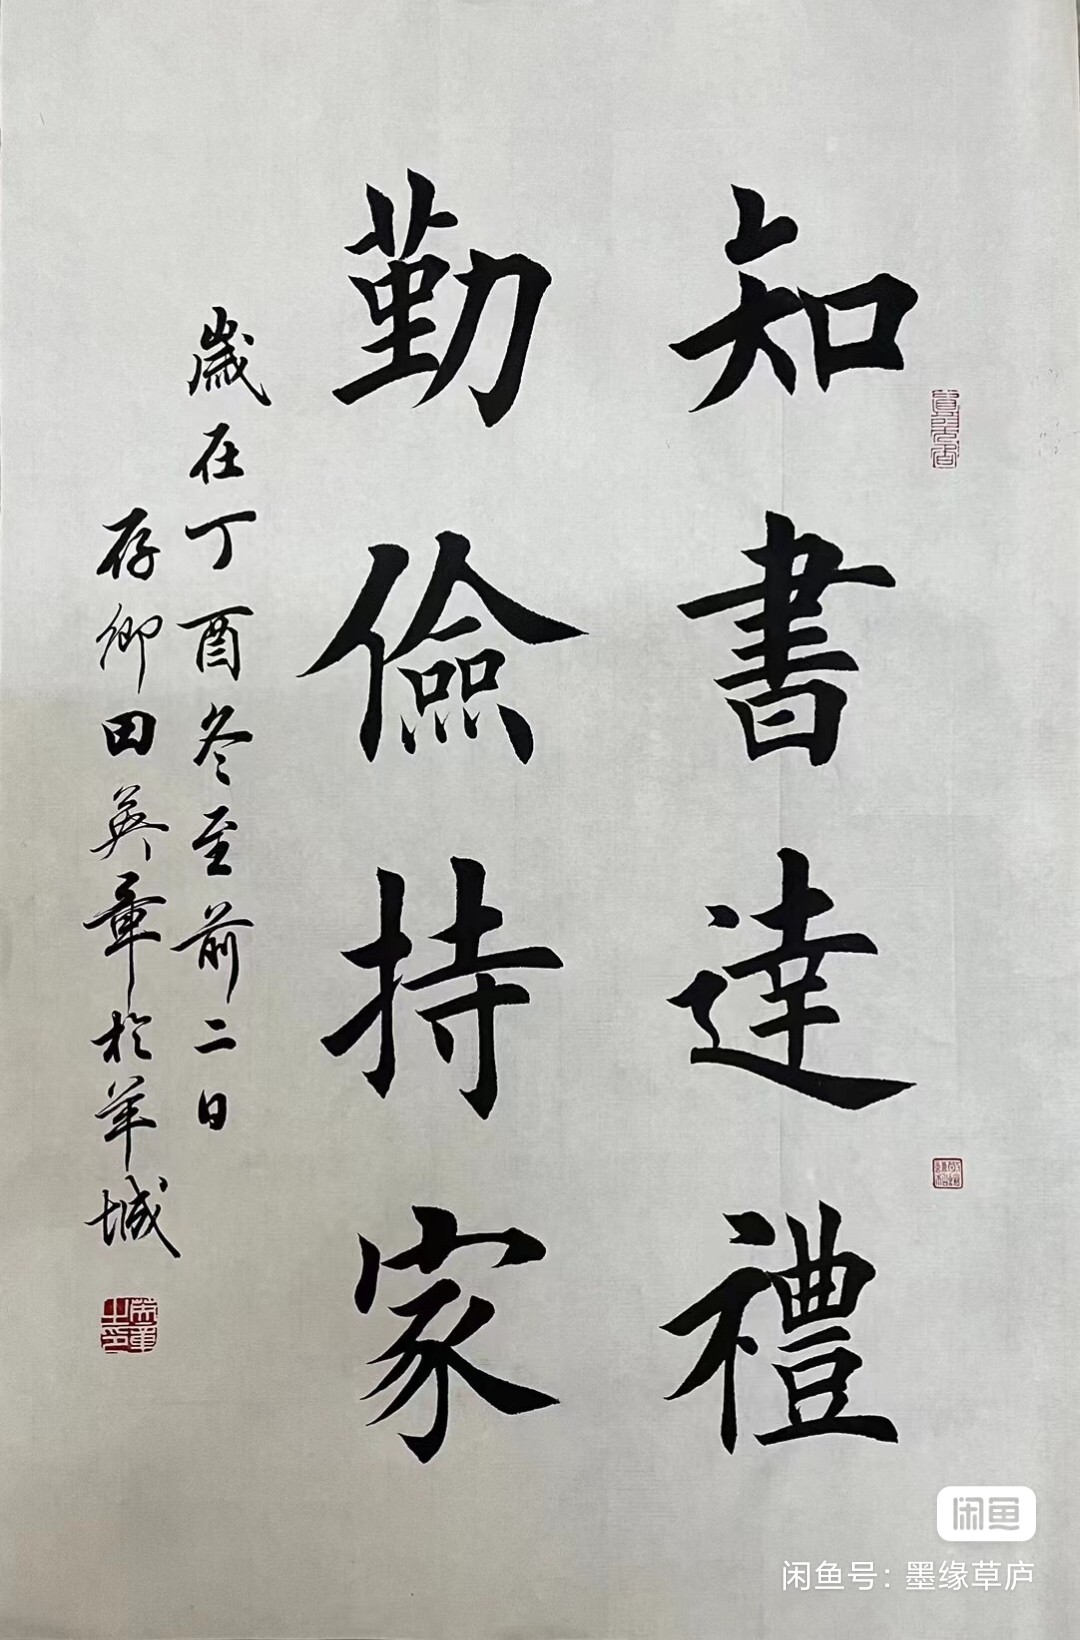 知書達禮
勤儉持家
歲在丁酉冬至前二日
存卿田英章於羊城
英章之印
闲鱼
闲鱼号：墨缘草庐